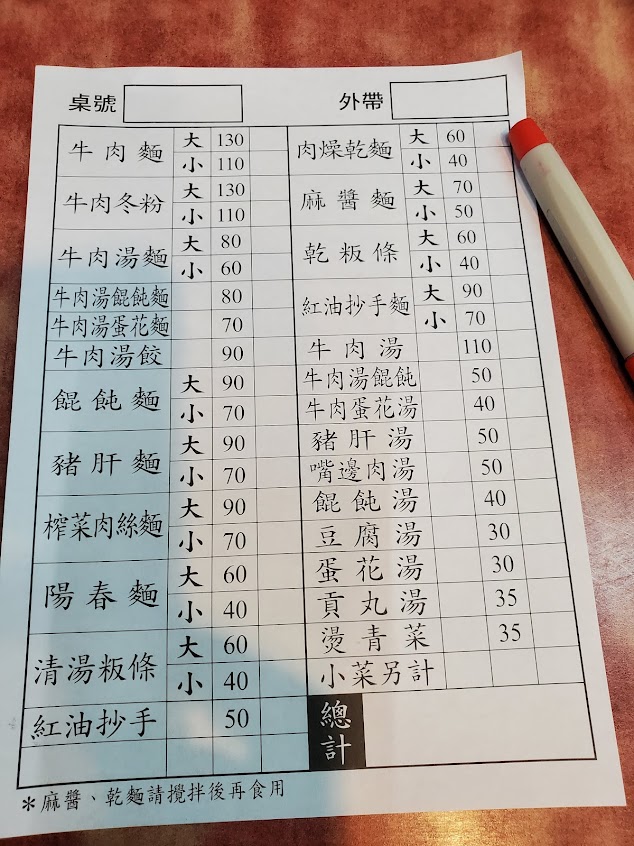 桌號 外帶
牛肉麵 大 130
小 110
牛肉冬粉 大 130
小 110
牛肉湯麵 大 80
小 60
牛肉湯餛飩麵 80
牛肉湯蛋花麵 70
牛肉湯餃 90
餛飩麵 大 90
小 70
豬肝麵 大 90
小 70
榨菜肉絲麵 大 90
小 70
陽春麵 大 60
小 40
清湯粄條 大 60
小 40
紅油抄手 50
肉燥乾麵 大 60
小 40
麻醬麵 大 70
小 50
乾粄條 大 60
小 40
紅油抄手麵 大 90
小 70
牛肉湯 110
牛肉湯餛飩 50
牛肉蛋花湯 40
豬肝湯 50
嘴邊肉湯 50
餛飩湯 40
豆腐湯 30
蛋花湯 30
貢丸湯 35
燙青菜 35
小菜另計
總計
*麻醬、乾麵請攪拌後再食用